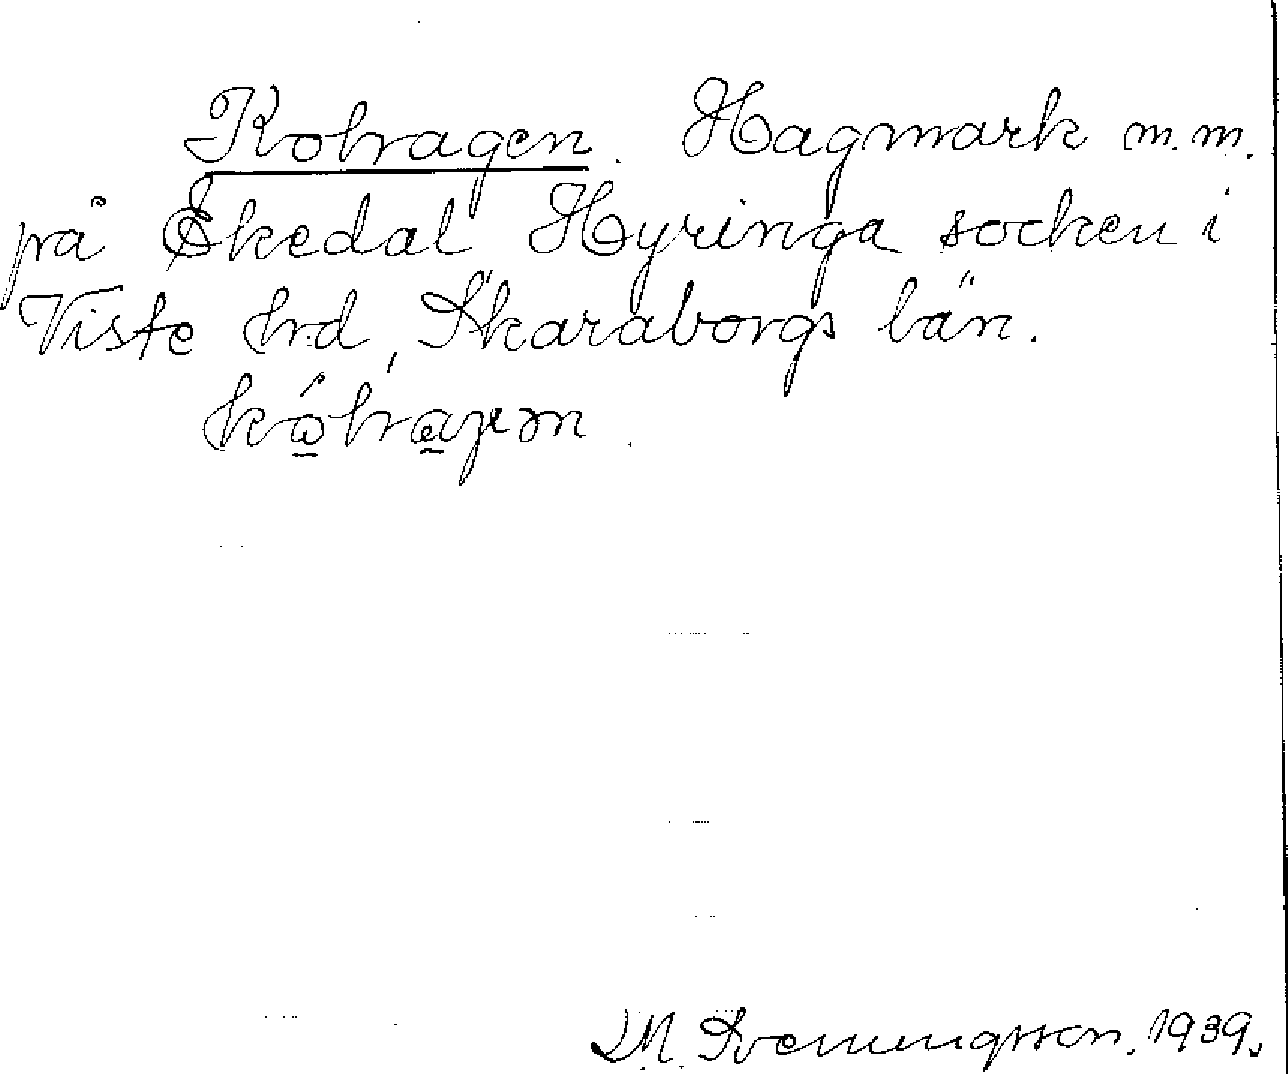 Kohagen. Hagmark m.m.
på Ekedal Hyringa socken i
Viste hrd, Skaraborgs län.
kóhaɣen.
M. Svenungsson. 1939.